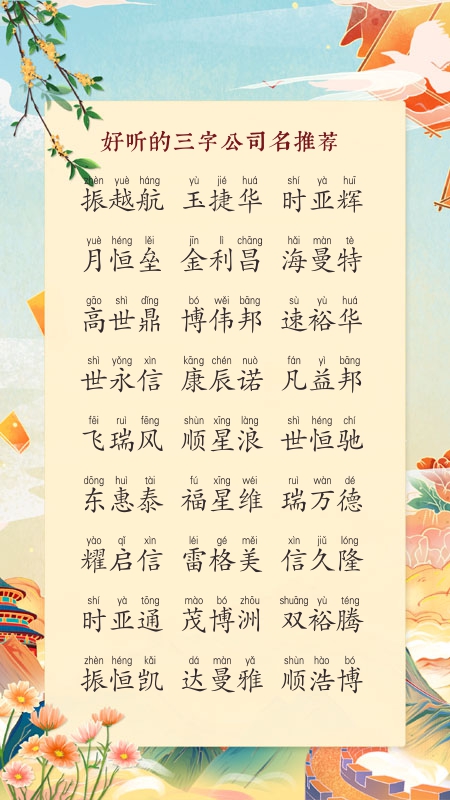 好听的三字公司名推荐
zhèn yuè háng yù jié huá shí yà huī
振越航 玉捷华 时亚辉
yuè héng lěi jīn lì chāng hǎi màn tè
月恒垒 金利昌 海曼特
gāo shì dǐng bó wěi bāng sù yù huá
高世鼎 博伟邦 速裕华
shì yǒng xìn kāng chén nuò fán yì bāng
世永信 康辰诺 凡益邦
fēi ruì fēng shùn xīng làng shì héng chí
飞瑞风 顺星浪 世恒驰
dōng huì tài fú xīng wéi ruì wàn dé
东惠泰 福星维 瑞万德
yào qǐ xìn léi gé měi xìn jiǔ lóng
耀启信 雷格美 信久隆
shí yà tōng mào bó zhōu shuāng yù téng
时亚通 茂博洲 双裕腾
zhèn héng kǎi dá màn yǎ shùn hào bó
振恒凯 达曼雅 顺浩博